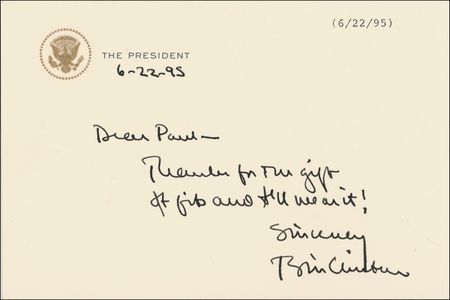 (6/22/95)
THE PRESIDENT
6-22-95
Dear Paul—
Thanks for the gift
It fits and I'll wear it!
Sincerely
Bill Clinton